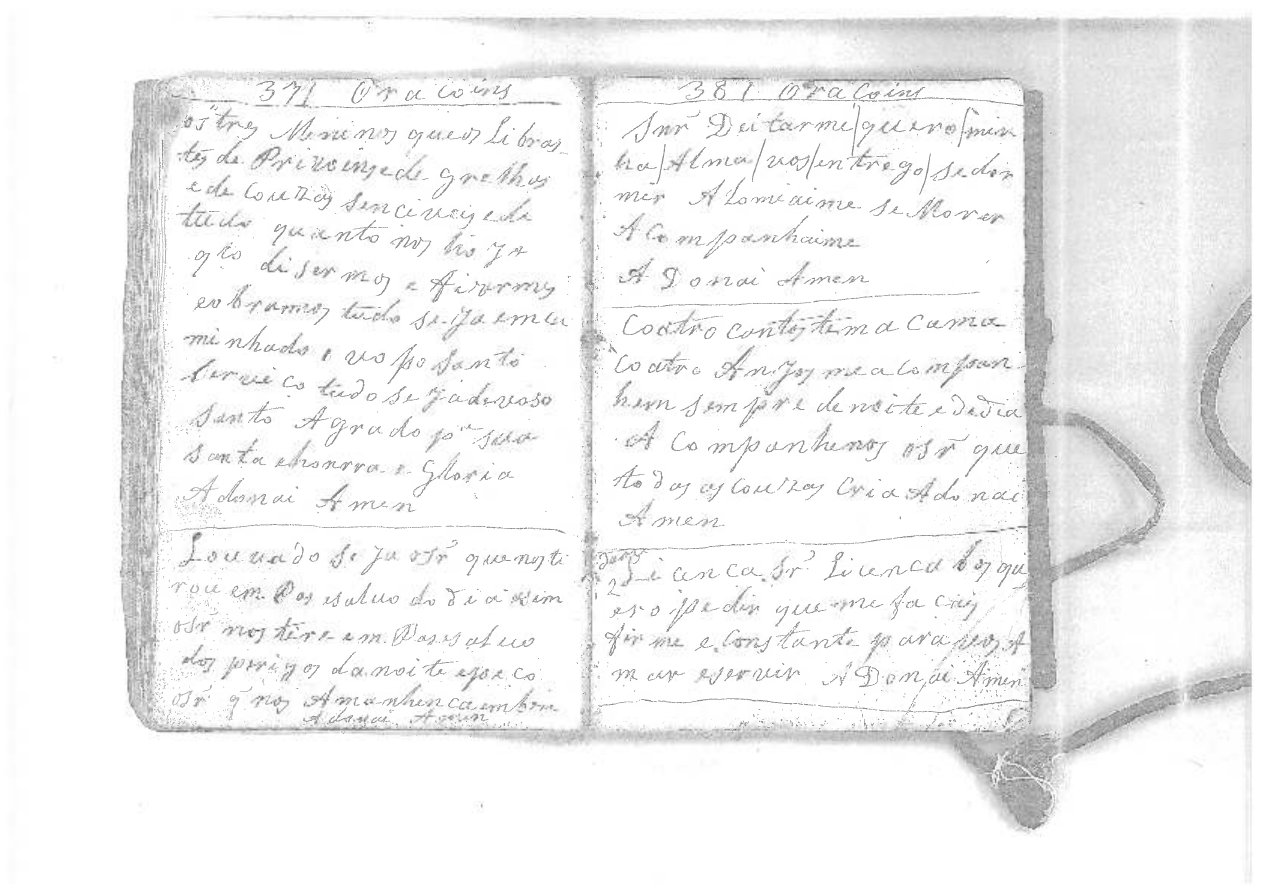 371 Oracoins
os tres Meninos queos Libras
tes de Privoinsede grelhos
ede Couzas senciveis ede
tudo quanto nos hoje
qto disermos e fizermos
eobramos tudo se Ja emca
minhado, vo po Santo
Servico tudo se Jadevoso
Santo Agrado pa Sua
Santa ehonrra e Gloria
Adonai Amen
Louvado se Ja osr que nos ti
rou em. Pas esalvo do dia asim
osr nos tire em. Pasesalvo
dos perigos da noite epeco
osr q nos Amanhenca em bem
Adonai Amen
381 OraCoins
Snr Deitarme/quero/min
ha/Alma/vos/entrego/sedor
mir Alomiaime se Morer
ACompanhaime
ADonai Amen
Coatro Cantos tem a Cama
Coatro Anjos me acompan
hem sempre denoite e dedia
ACompanhenos osr que
todas as Couzas Cria Adonai
Amen
Licenca Sr Licenca bos qu
ero pedir que me facais
firme e Constante para vos A
mar eservir ADonai Amen